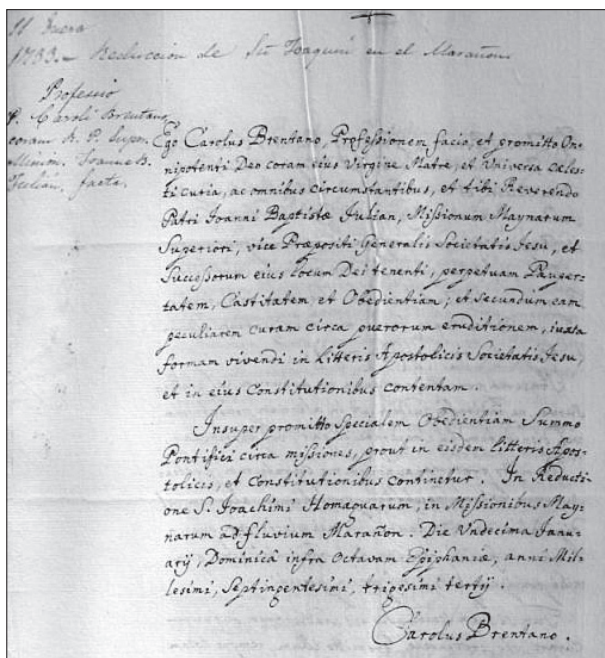 11 Enero
1733.- Reduccion de Sn Joaquin en el Marañon
Professio
P. Caroli Brentano
coram R. P. Super.
Mission. Joanne B.
Julian, facta.
Ego Carolus Brentano, Professionem facio, et promitto Om-
nipotenti Deo coram eius Virgine Matre, et Universa cæles-
ti curia, ac omnibus circumstantibus, et tibi Reverendo
Patri Joanni Baptistæ Julian, Missionum Maynarum
Superiori, vice Præpositi Generalis Societatis Jesu, et
Successorum eius locum Dei tenenti, perpetuam Pauper-
tatem, Castitatem, et Obedientiam; et secundum eam
peculiarem curam circa puerorum eruditionem, iuxta
formam vivendi in Litteris Apostolicis Societatis Jesu,
et in eius Constitutionibus contentam.
Insuper promitto specialem Obedientiam Summo
Pontifici circa missiones, prout in eisdem Litteris Apos-
tolicis, et Constitutionibus continetur. In Reducti-
one S. Joachimi Homaguarum, in Missionibus May-
narum ad fluvium Marañon. Die Undecima Janu-
arij, Dominicâ infra Octavam Epiphaniæ, anni Mil-
lesimi, Septingentesimi, trigesimi tertij.
Carolus Brentano.